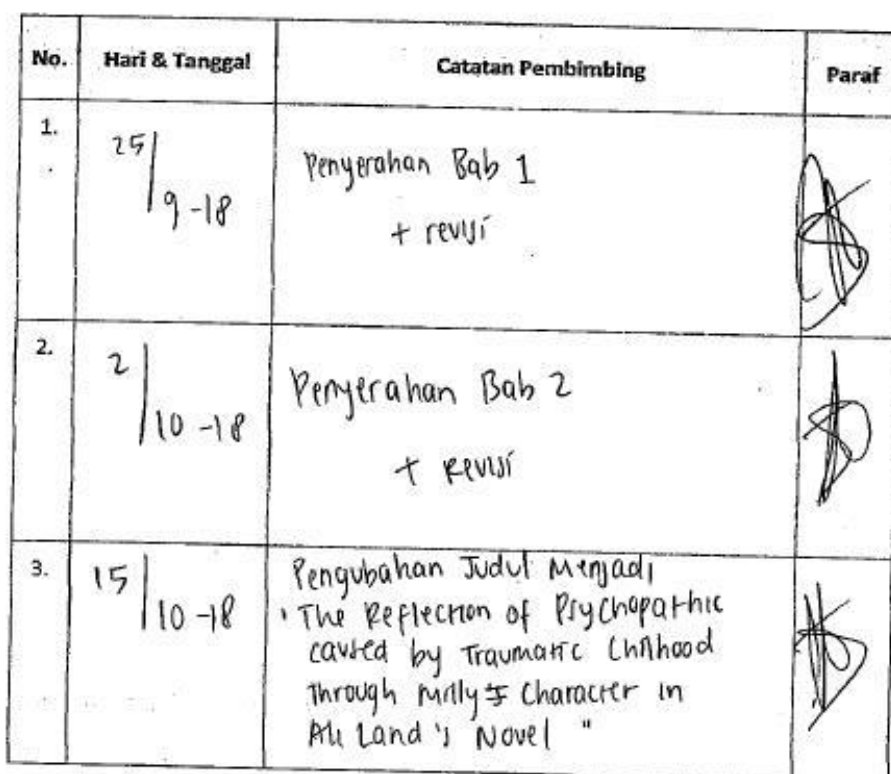 No. Hari & Tanggal Catatan Pembimbing Paraf
1. 25/9-18 Penyerahan Bab 1
+ revisi
2. 2/10-18 Penyerahan Bab 2
+ Revisi
3. 15/10-18 Pengubahan Judul Menjadi
"The Reflection of Psychopathic
caused by Traumatic Chilhood
Through Milly's Character in
Ali Land's Novel"